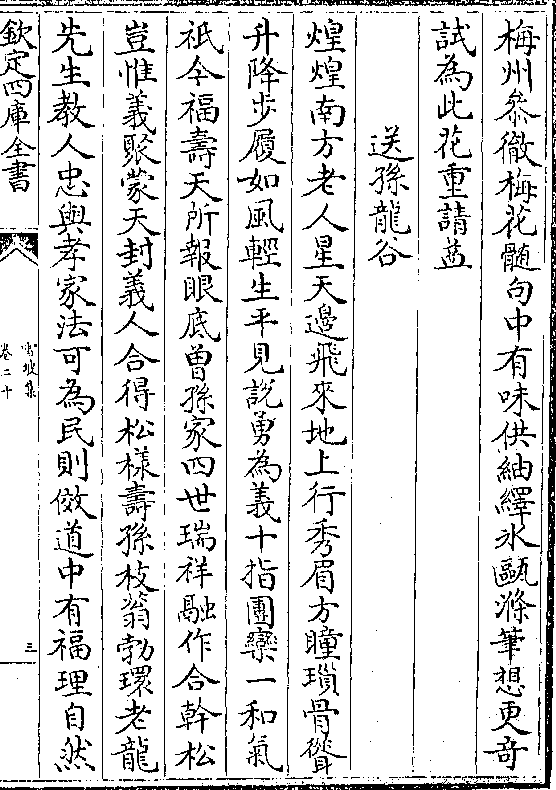 梅州叅徹梅花髓句中有味供紬繹氷甌滌筆想更竒
試為此花重請益
送孫龍谷
煌煌南方老人星天邊飛來地上行秀眉方瞳瑣骨聳
升降步履如風輕生平見說勇為義十指團欒一和氣
祇今福壽天所報眼底曽孫家四世瑞祥融作合幹松
豈惟義聚蒙天封義人合得松様壽孫枝蓊勃環老龍
先生教人忠與孝家法可為民則傚道中有福理自然
欽定四庫全書
卷二十
三